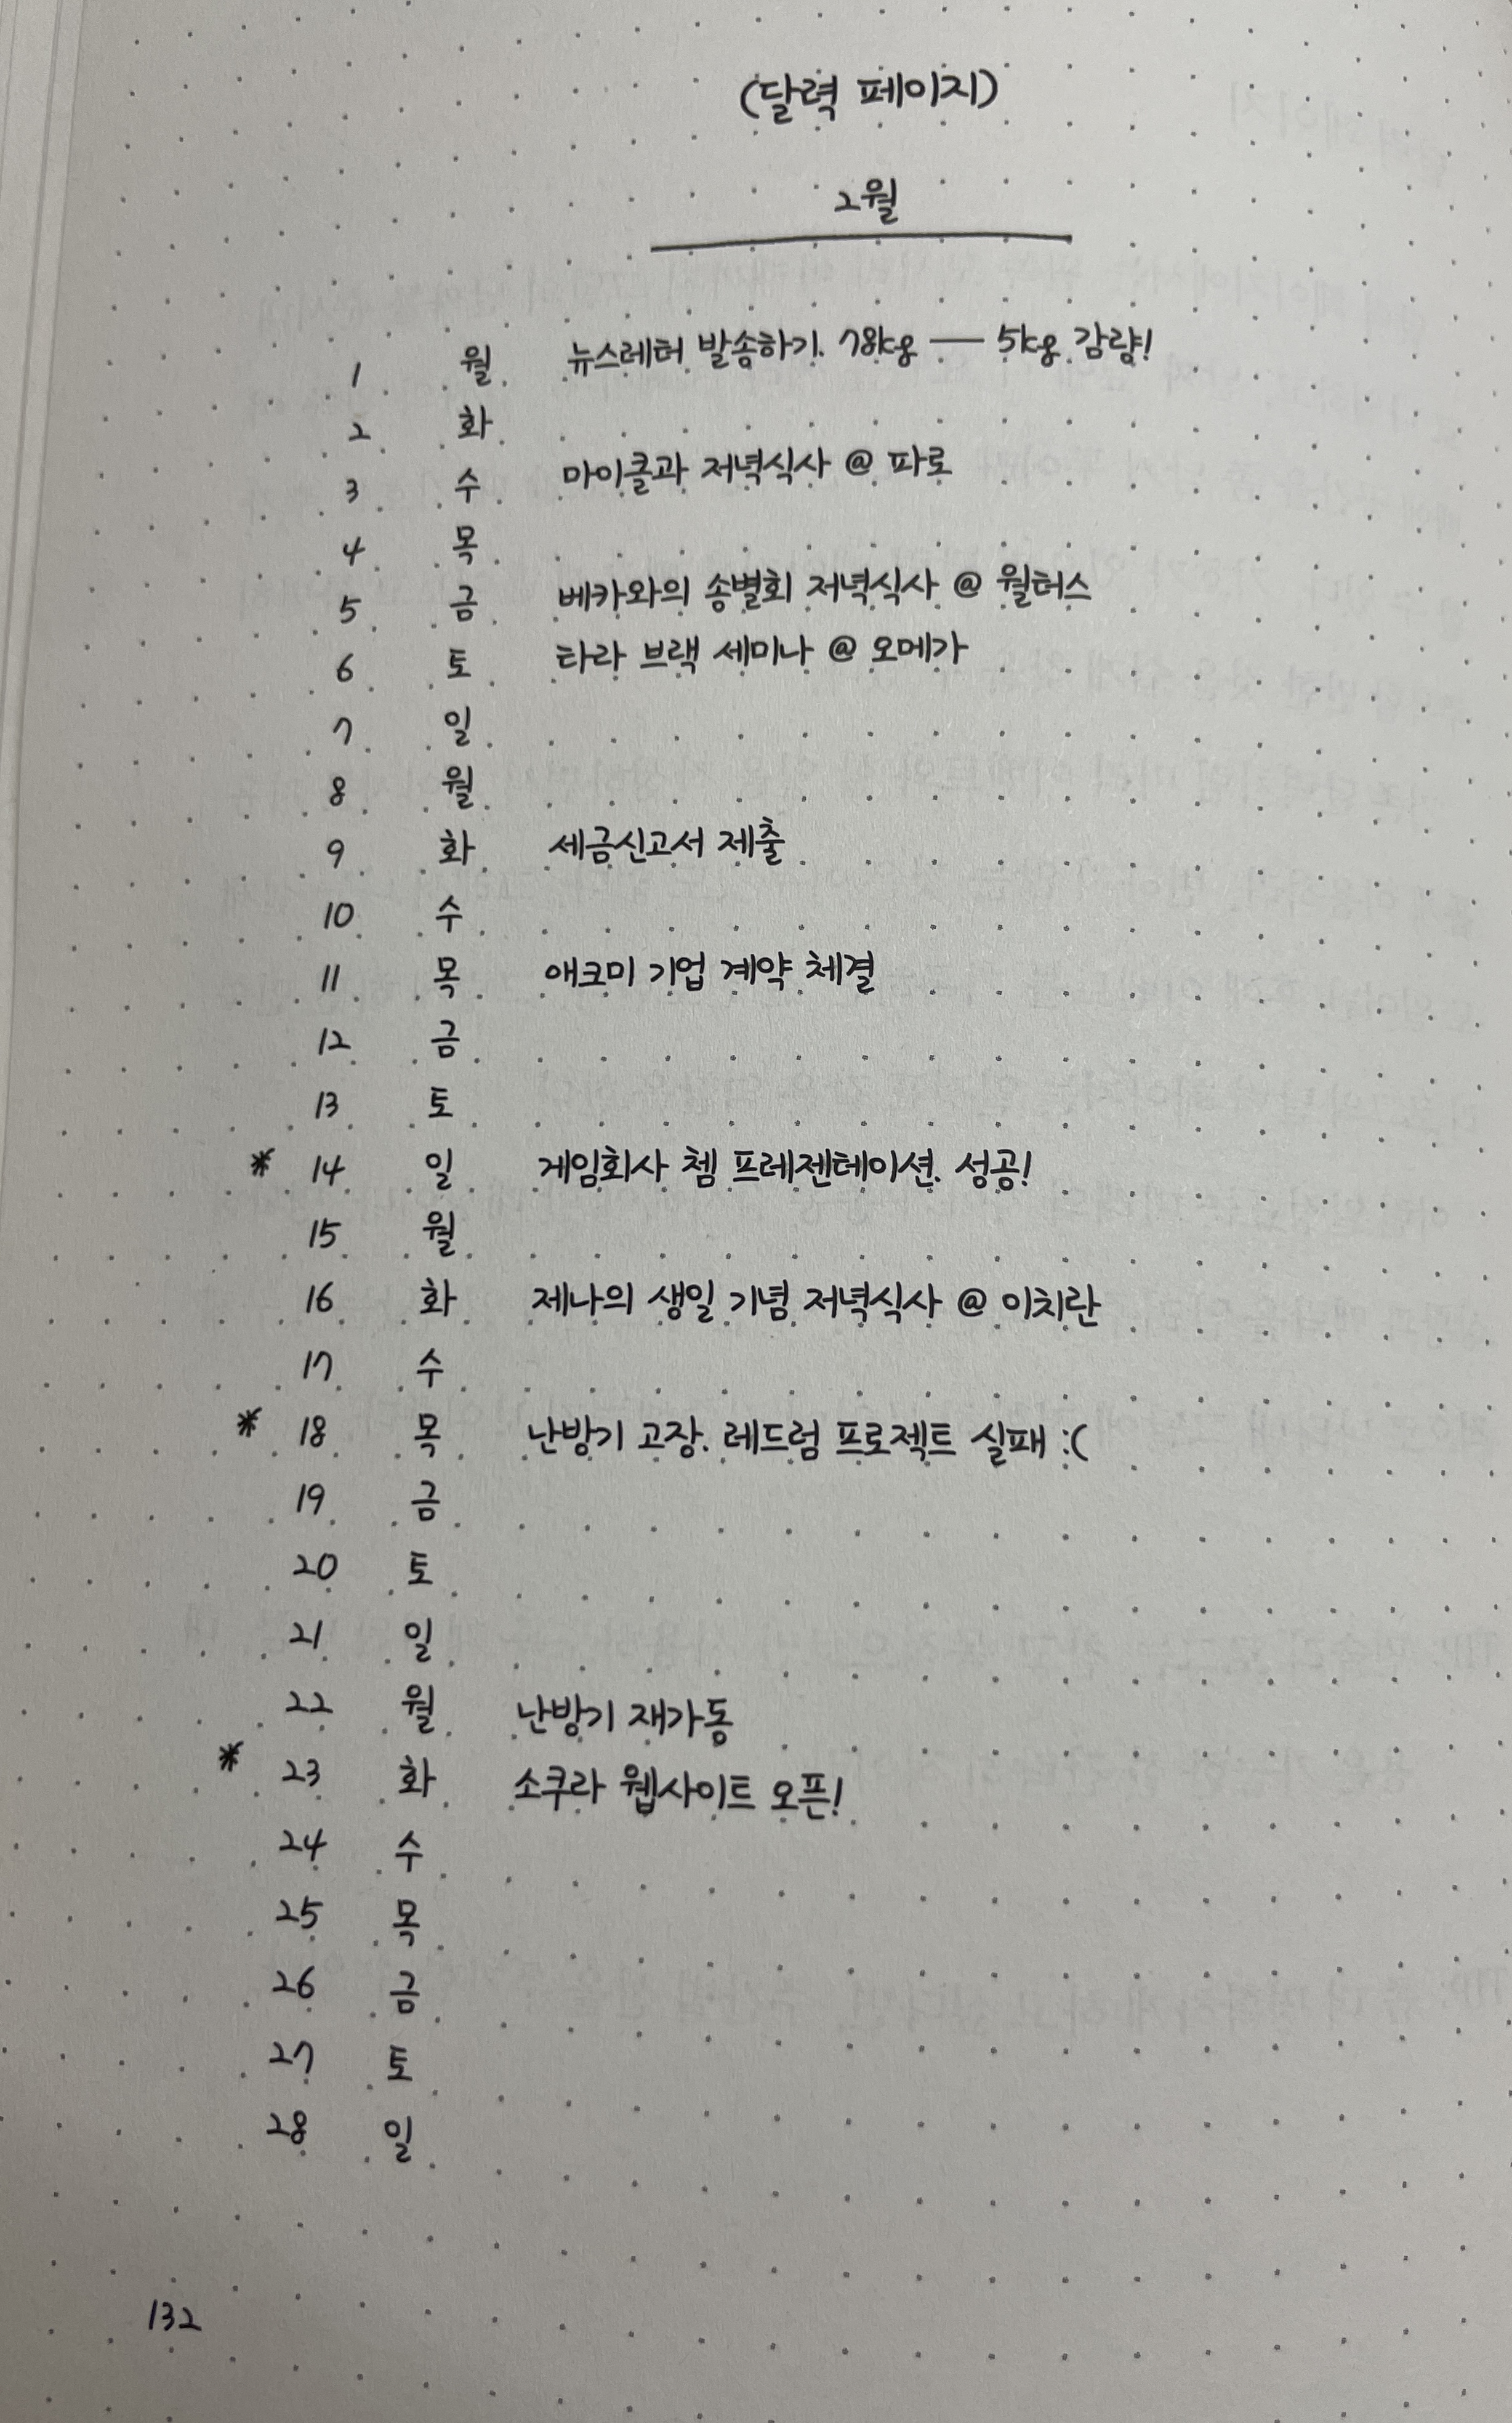 (달력 페이지)
2월
1 월 뉴스레터 발송하기. 78kg — 5kg 감량!
2 화
3 수 마이클과 저녁식사 @ 파로
4 목
5 금 베카와의 송별회 저녁식사 @ 월터스
6 토 타라 브랙 세미나 @ 오메가
7 일
8 월
9 화 세금신고서 제출
10 수
11 목 애크미 기업 계약 체결
12 금
13 토
* 14 일 게임회사 쳄 프레젠테이션. 성공!
15 월
16 화 제나의 생일 기념 저녁식사 @ 이치란
17 수
* 18 목 난방기 고장. 레드럼 프로젝트 실패 :(
19 금
20 토
21 일
22 월 난방기 재가동
* 23 화 소쿠라 웹사이트 오픈!
24 수
25 목
26 금
27 토
28 일
132